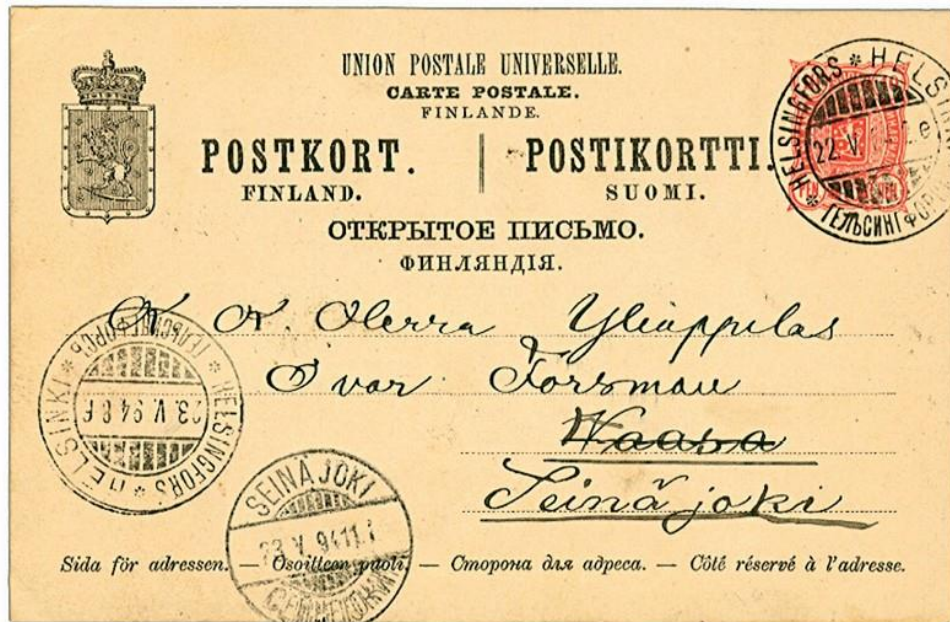 UNION POSTALE UNIVERSELLE.
CARTE POSTALE.
FINLANDE.
POSTKORT. POSTIKORTTI.
FINLAND. SUOMI.
ОТКРЫТОЕ ПИСЬМО.
ФИНЛЯНДІЯ.
HELSINGFORS * HELSIN
22.V.
ГЕЛЬСИНГФОР
K. K. Herra Ylioppilas
Ivar Forsman
Waasa
Seinäjoki
HELSINKI * HELSINGFORS * ГЕЛЬСИНГФОРСЪ
23.V.94 8
SEINÄJOKI
23.V.94 11
Sida för adressen. — Osoitteen puoli. — Сторона для адреса. — Côté réservé à l'adresse.